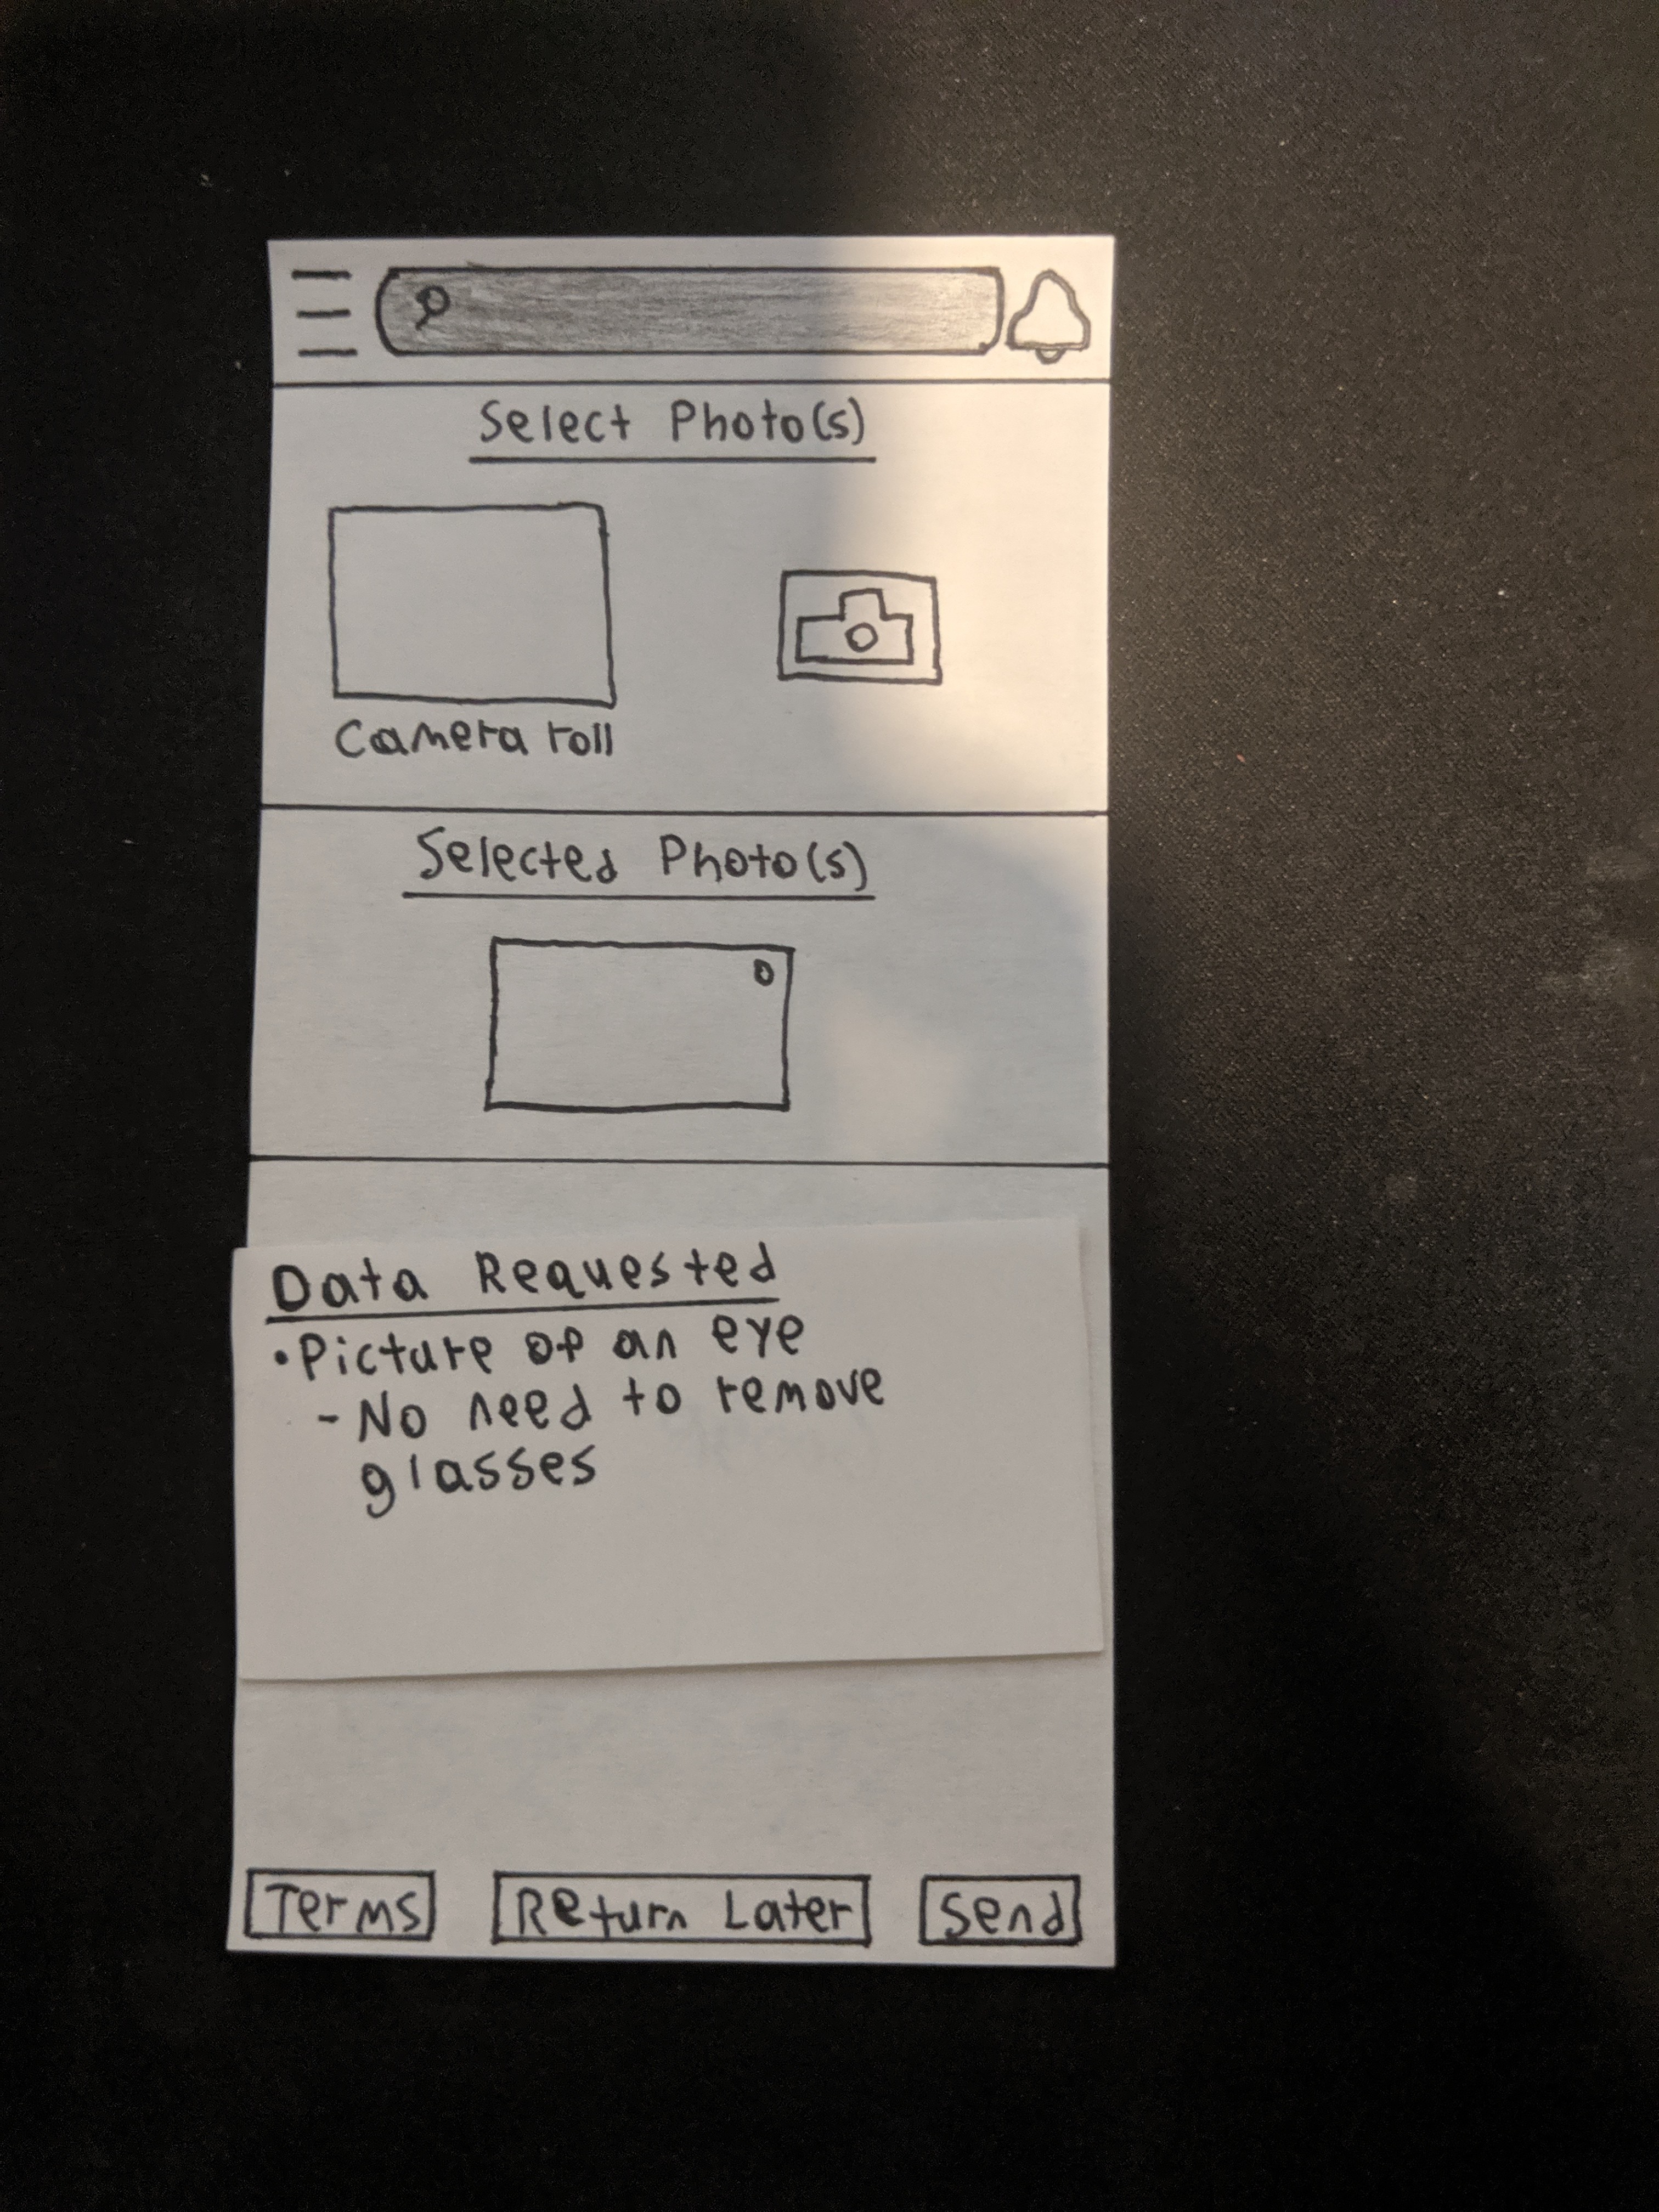 Select Photo(s)
Camera roll
Selected Photo(s)
Data Requested
•Picture of an eye
-No need to remove
glasses
Terms
Return Later
Send